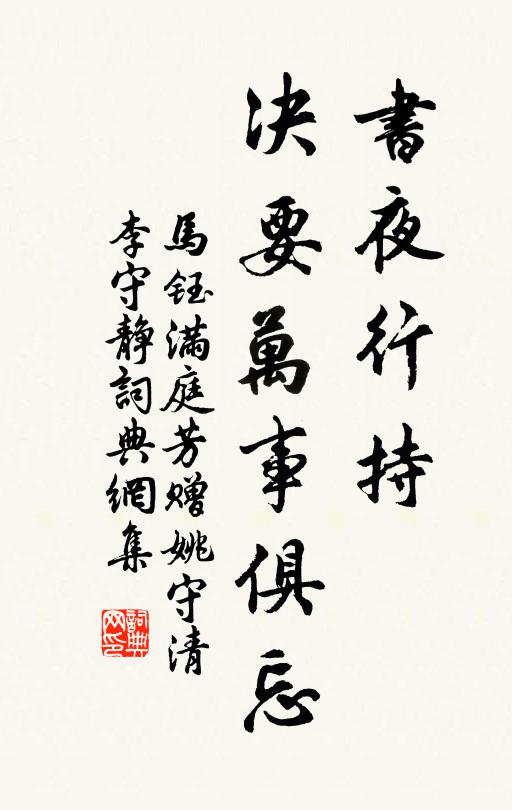 書夜行持
決要萬事俱忘
馬鈺滿庭芳赠姚守清
李守靜詞典網集
詞典
网印